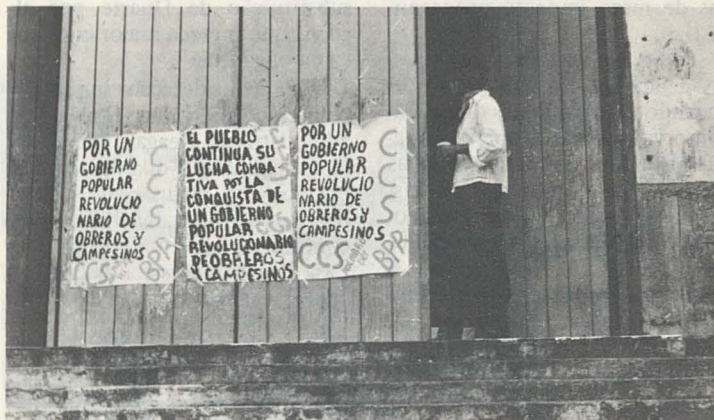 POR UN
GOBIERNO
POPULAR
REVOLUCIO
NARIO DE
OBREROS Y
CAMPESINOS
CCS
BPR
C
C
S
EL PUEBLO
CONTINUA SU
LUCHA COMBA-
TIVA POR LA
CONQUISTA DE
UN GOBIERNO
POPULAR
REVOLUCIONARIO
DE OBREROS
Y CAMPESINOS
CCS
POR UN
GOBIERNO
POPULAR
REVOLUCIO
NARIO DE
OBREROS Y
CAMPESINOS
CCS
BPR
C
C
S